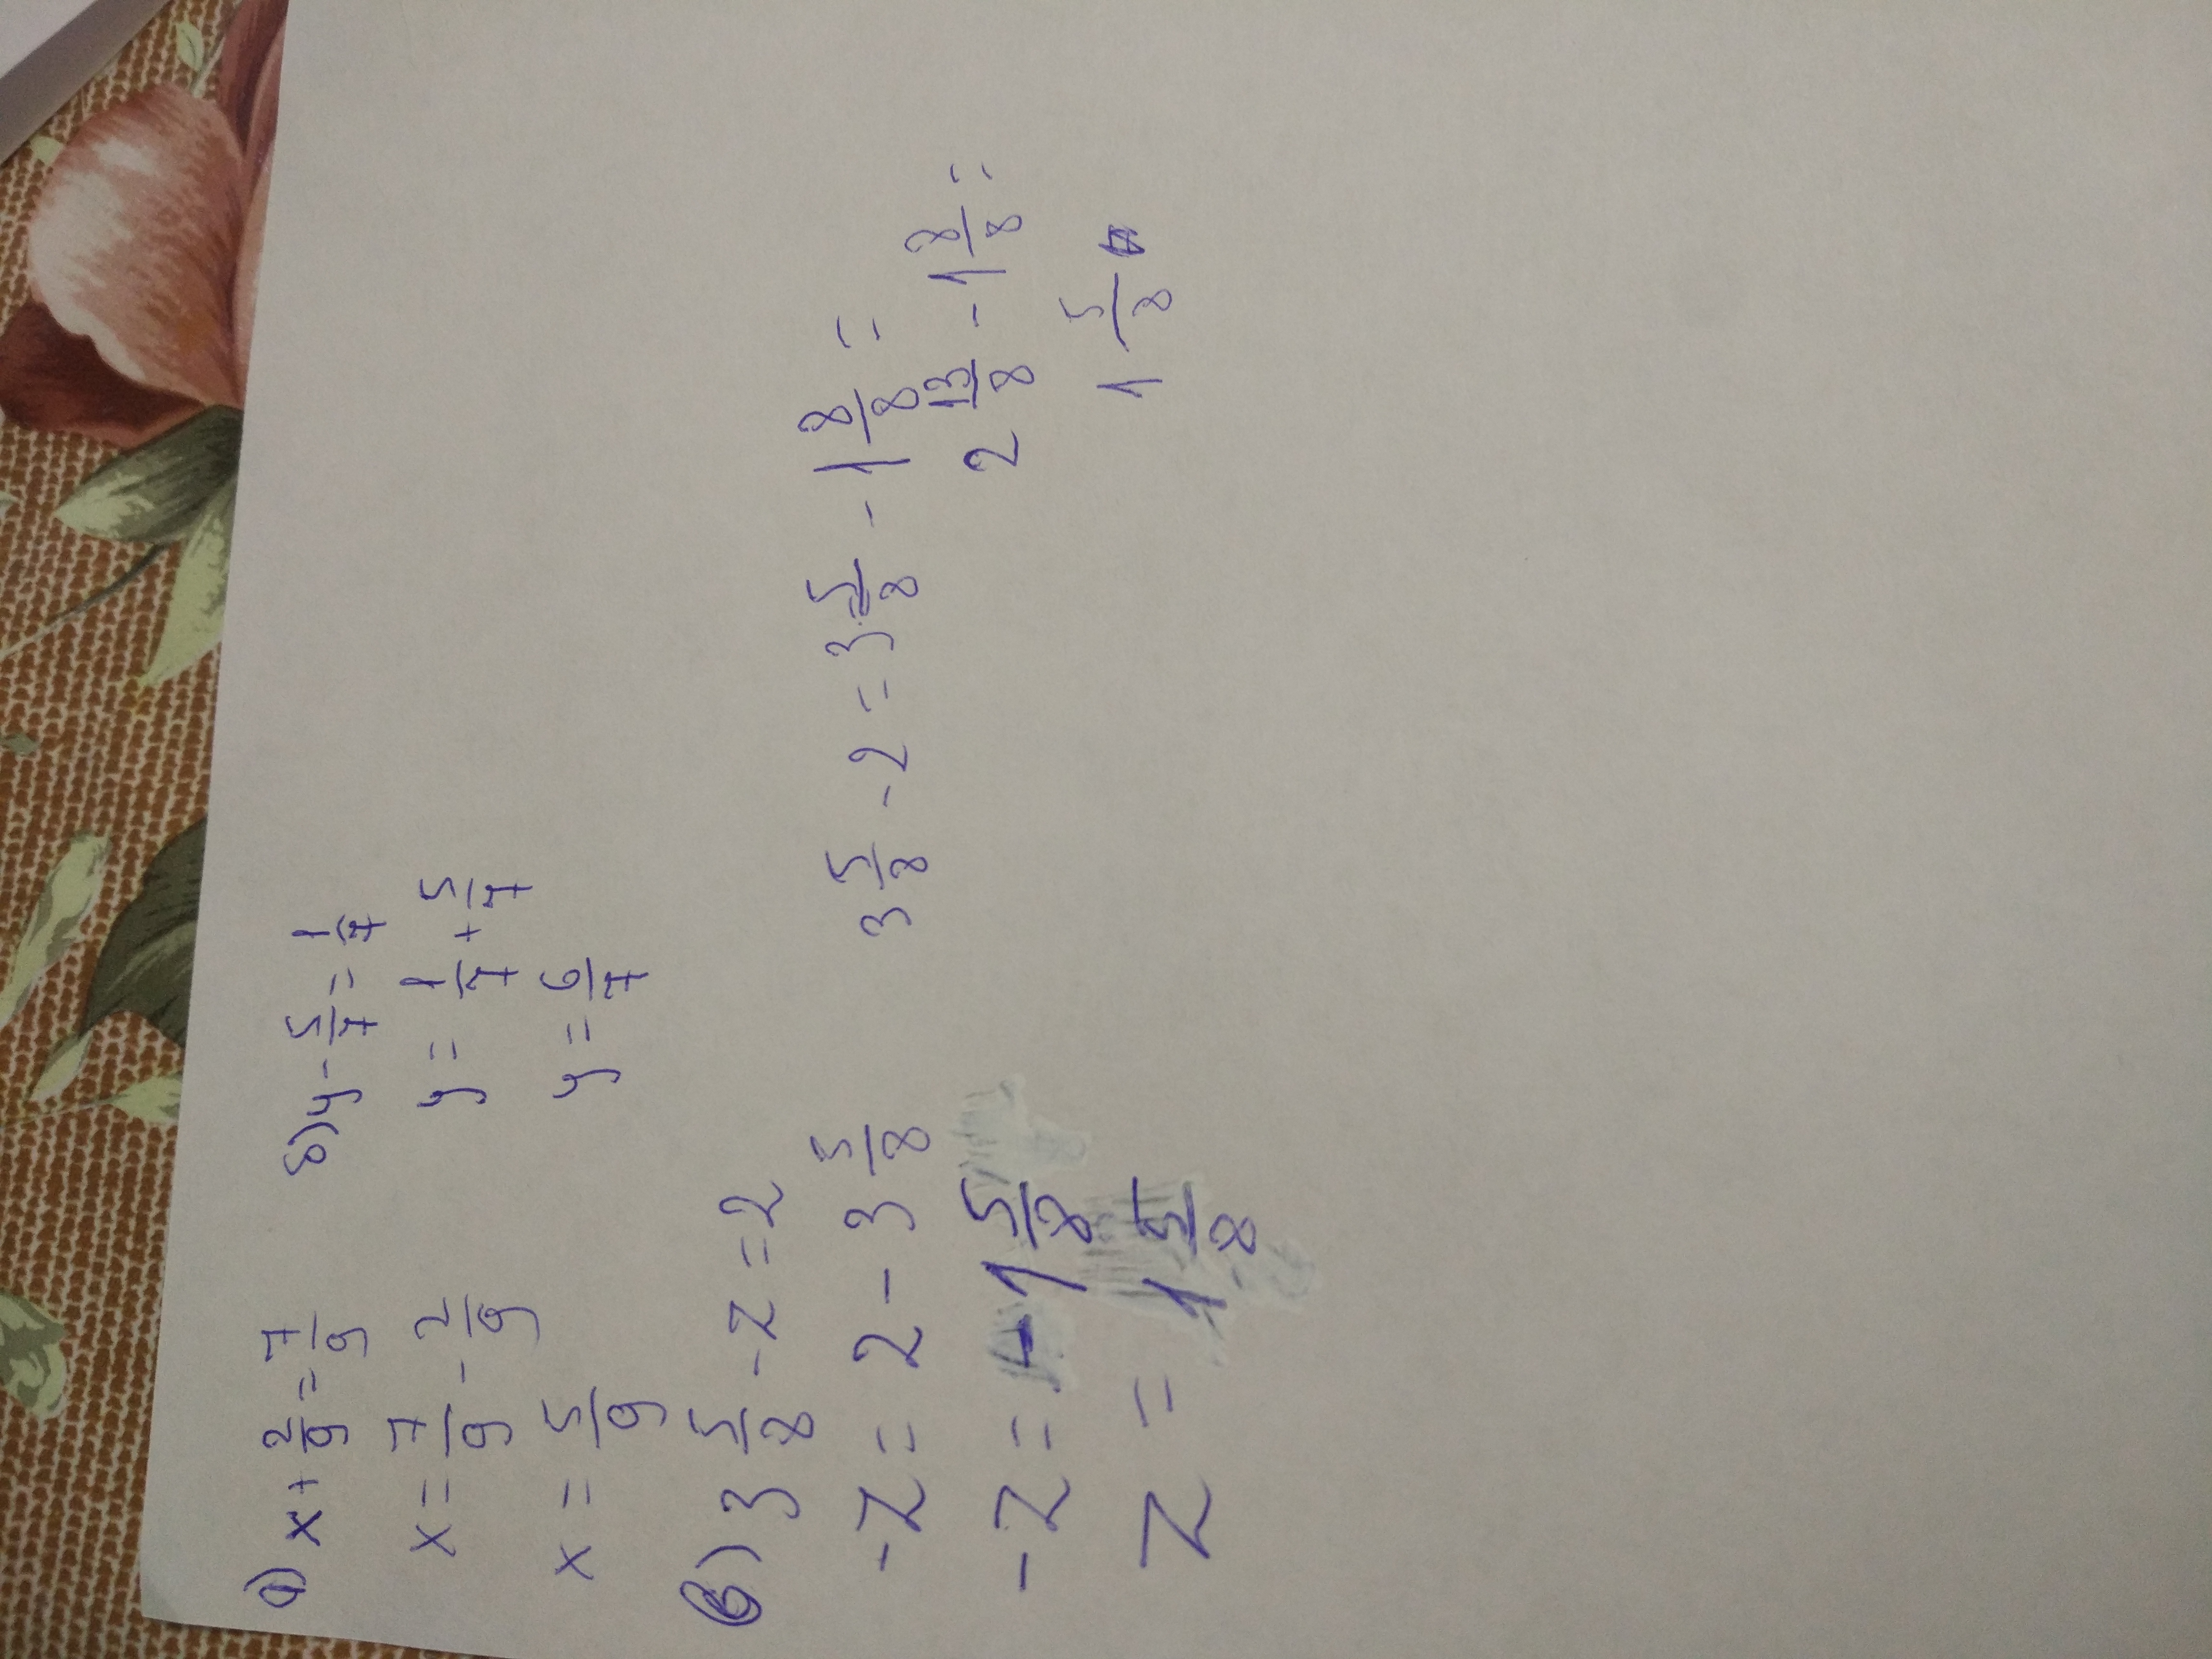 а) x + 2/9 = 7/9
x = 7/9 - 2/9
x = 5/9
б) y - 5/7 = 1/7
y = 1/7 + 5/7
y = 6/7
в) 3 5/8 - z = 2
-z = 2 - 3 5/8
-z = -1 5/8
z = 1 5/8
3 5/8 - 2 = 3 5/8 - 1 8/8 =
2 13/8 - 1 8/8 =
1 5/8